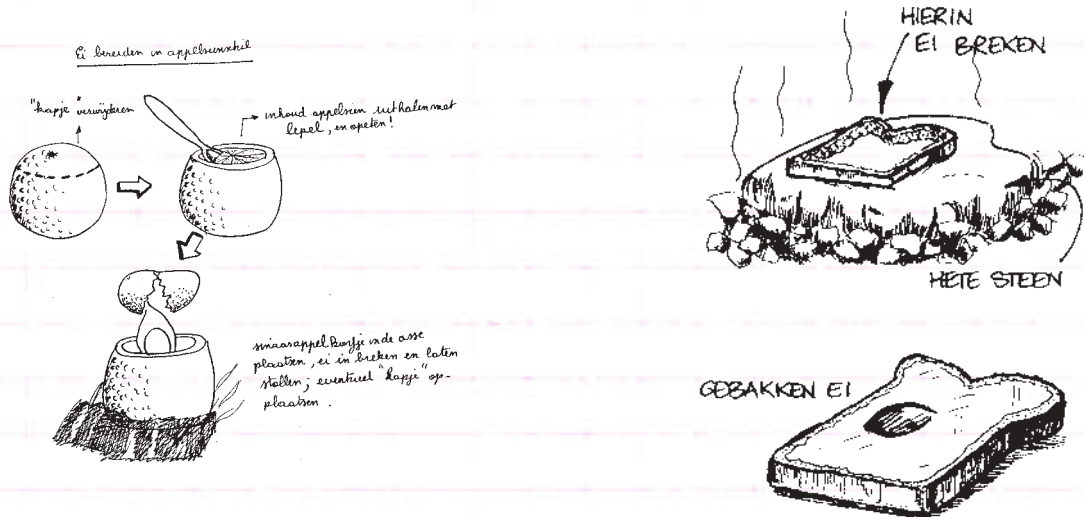 Ei bereiden in appelsienschil
"kapje" verwijderen
inhoud appelsien uithalen met
lepel, en opeten!
sinaasappelkorfje in de asse
plaatsen, ei in breken en laten
stollen; eventueel "kapje" op-
plaatsen.
HIERIN
EI BREKEN
HETE STEEN
GEBAKKEN EI